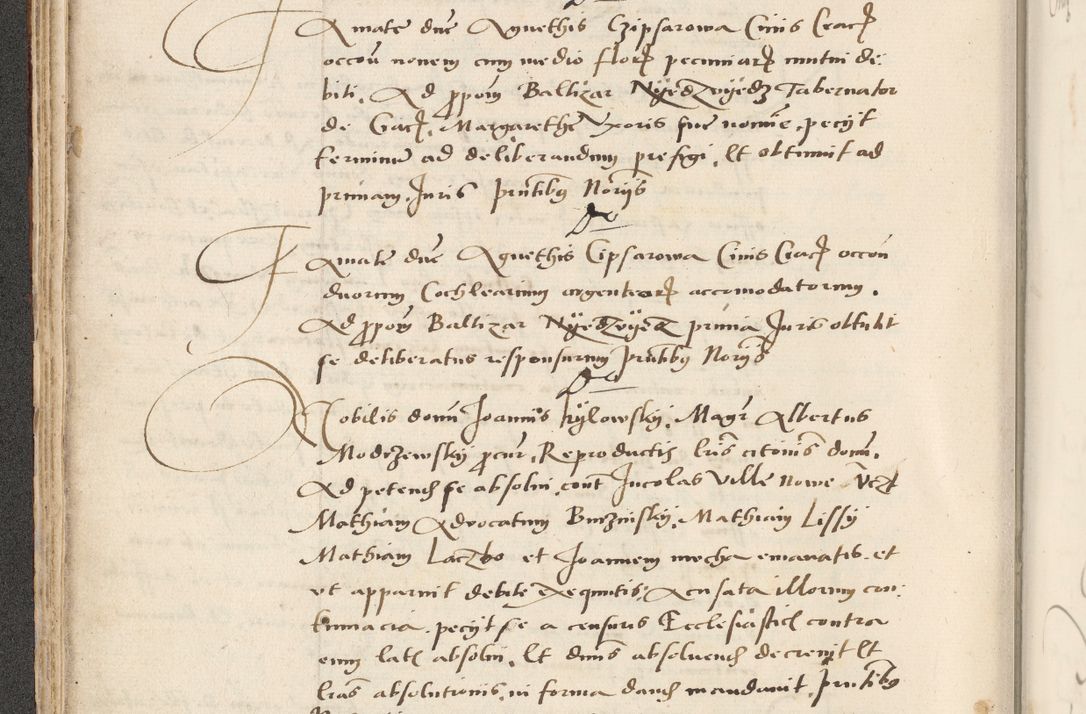 Famate dne Agnethis Czipsarowa Civis Crac
occoñ novem cum medio flor pecuniar mutui de
biti. Ad ppoñ Baltizar Nyedzvyedz Tabernator
de Crac. Margarethe Vxoris sue nomine, pecyt
terminu ad deliberandum prefigi. Et obtinuit ad
primam Juris prntibus Norys
Do
Famate dne Agnethis Cipsarowa Civis Crac occoñ
duorum Cochlearium argentear accomodatorum.
Ad ppoñ Baltizar Nyedzvyedz prima Juris obtulit
se deliberatus responsurum prntibus Norys
Do
Nobilis domi Joannis kylowsky, Magr Albertus
Modrzewsky pcur, Reproductis lris citonis domi,
Ad petend se absolvi, cont Incolas Ville Nowe
Mathiam Advocatum Burzinsky, Mathiam Lissy
Mathiam Laczko et Joannem mecha emanatis, et
ut apparuit debite exequutis, Acusata illorum con:
tumacia, pecyt se a censuris Ecclesiastic contra
eum lat absolvi, Et dnus absolvend decrevit Et
lras absolutionis, in forma dand mandavit, prntibus